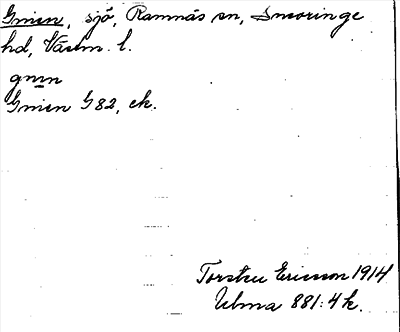 Gnien, sjö, Ramnäs sn, Snevringe
hd, Västm. l.
Gnien G82, ek.
Torsten Ericsson 1914
Ulma 881:4 k.